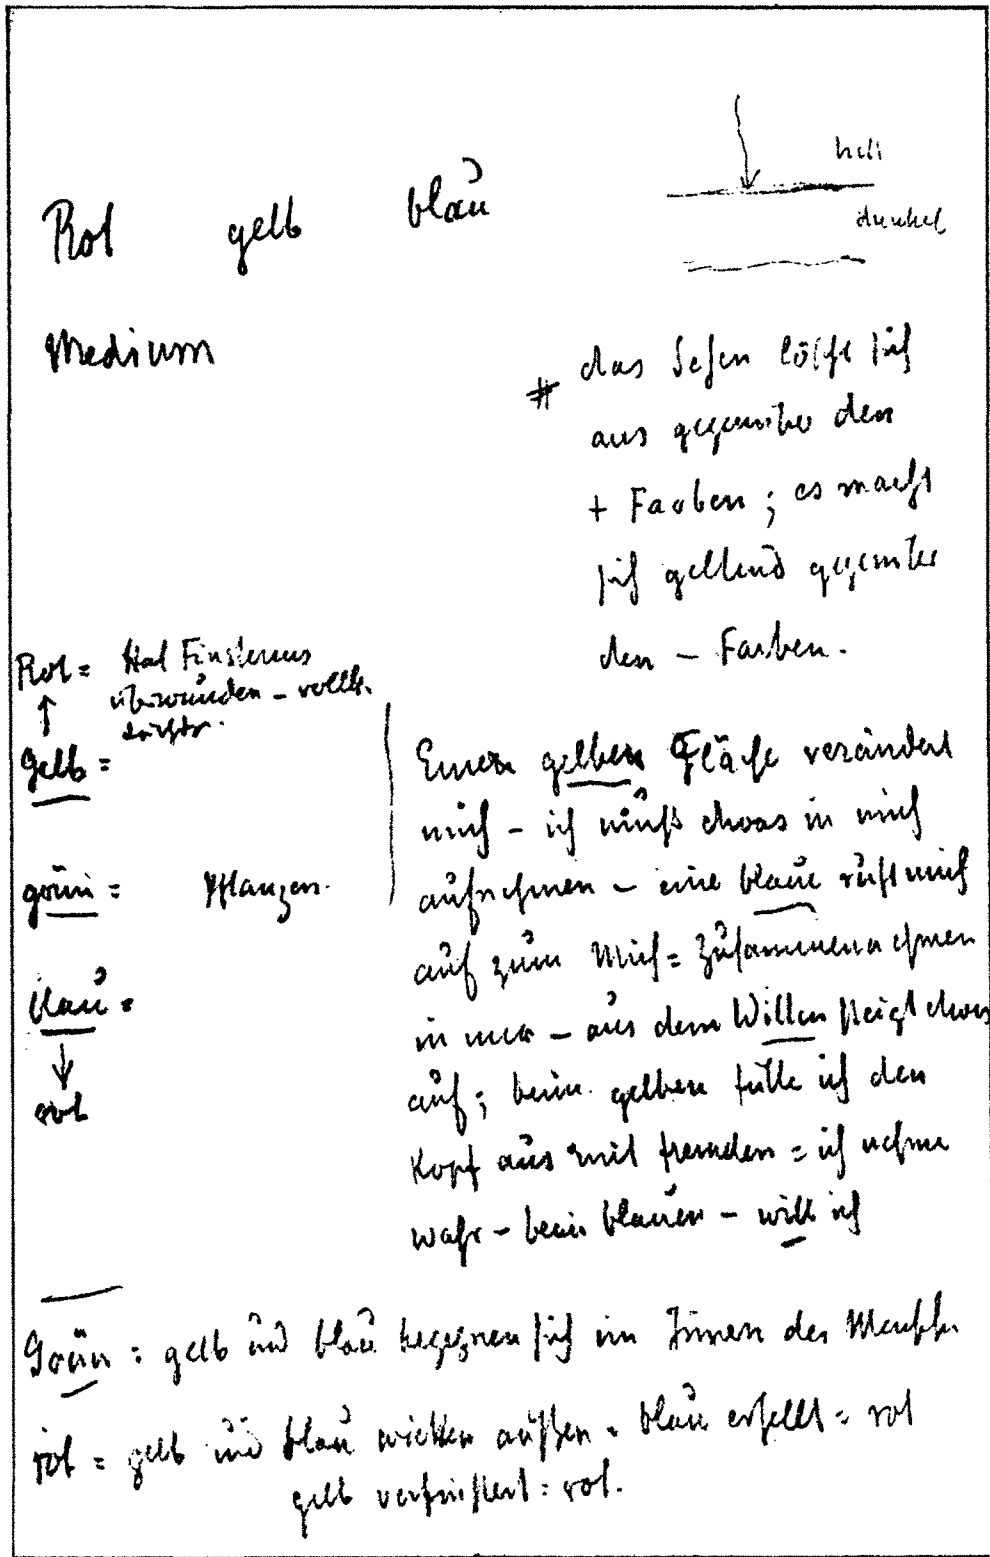 hell
Rot gelb blau
dunkel
Medium
# das Sehen löscht sich
aus gegenüber den
+ Farben; es macht
sich geltend gegenüber
den - Farben.
Rot = Hat Finsternis
überwunden -
↑
Gelb =
grün = Pflanzen.
blau =
↓
rot
Einer gelben Fläche verändert
mich - ich muß etwas in mich
aufnehmen - eine blaue ruft mich
auf zum Mich=Zusammennehmen
in mir - aus dem Willen steigt etwas
auf; beim gelben fülle ich den
Kopf aus mit fremden = ich nehme
wahr - beim blauen - will ich
Grün = gelb und blau begegnen sich im Innern des Menschen
rot = gelb und blau wirken außen = blau erhellt = rot
gelb verfinstert = rot.